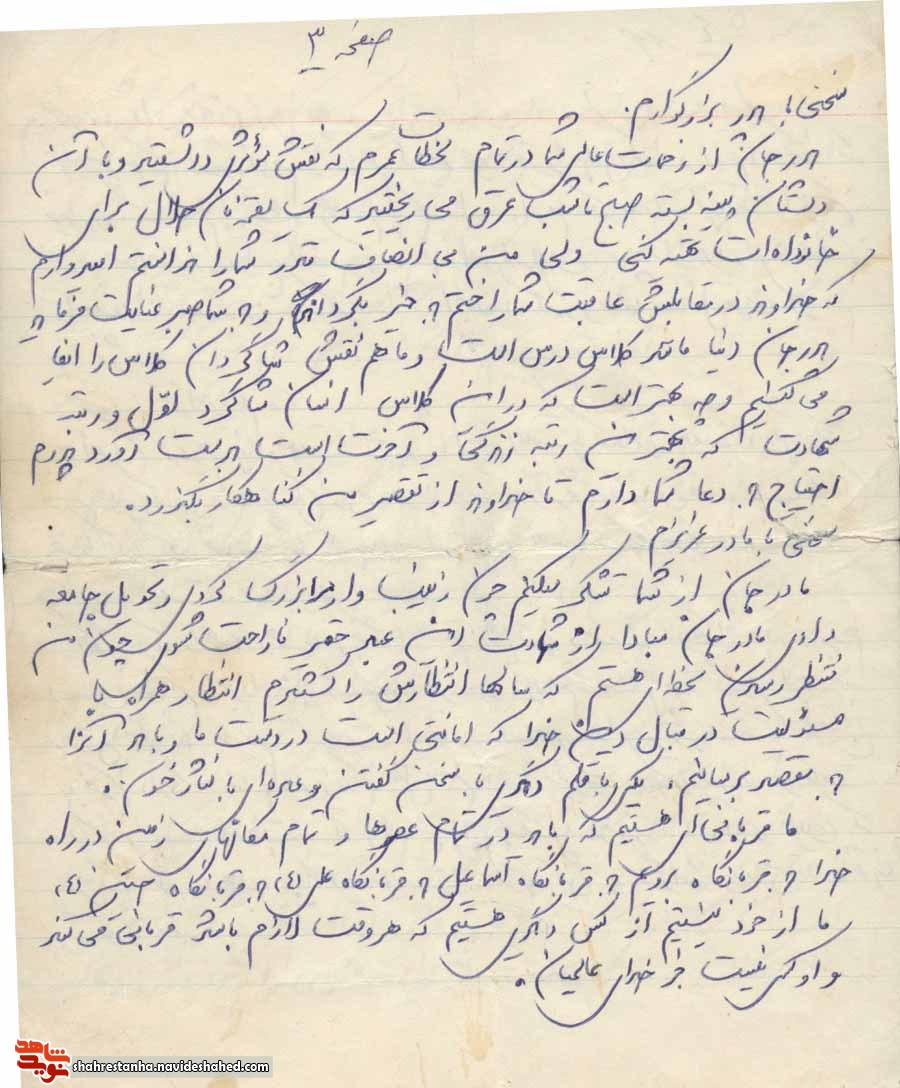 صفحه ۳
سخنی با پدر بزرگوارم.
پدر جان از زحمات عالی شما در تمام لحظات عمرم که نقش مؤثری داشتید و با آن
دستان پینه بسته صبح تا شب عرق می ریختید که یک لقمه نان حلال برای
خانواده‌ات تهیه کنی ولی من بی انصاف قدر شما را ندانستم امیدوارم
که خداوند در مقابلش عاقبت شما را ختم به خیر بگرداند و به شما صبر عنایت فرماید
پدر جان دنیا مانند کلاس درس است و ما هم نقش شاگردان کلاس را ایفا
می کنیم و چه بهتر است که در این کلاس انسان شاگرد اول و رتبه
شهادت که بهترین رتبه زندگی و آخرت است بدست آورد پدرم
احتیاج به دعا شما دارم تا خداوند از تقصیر من گناهکار بگذرد.
سخنی با مادر عزیزم
مادر جان از شما تشکر میکنم چون زینب وار مرا بزرگ کردی و تحویل جامعه
دادی مادر جان مبادا از شهادت این عبد حقیر ناراحت شوی چون من
منتظر رسیدن لحظه‌ای هستم که سالها انتظارش را کشیدم انتظار همراه با
مسؤلیت در قبال دین خدا که امانتی است در دست ما و باید آنرا
به مقصد برسانیم، یکی با قلم دیگری با سخن گفتن و عده‌ای با نثار خون.
ما قربانی‌ای هستیم که باید در تمام عصرها و تمام مکانهای زمین در راه
خدا به قربانگاه برویم به قربانگاه اسماعیل به قربانگاه علی (ع)، به قربانگاه حسین (ع)،
ما از خود نیستیم از کس دیگری هستیم که هر وقت لازم باشد قربانی می کند
و او کسی نیست جز خدای عالمیان.
شاهد
نوید
shahrestanha.navideshahed.com